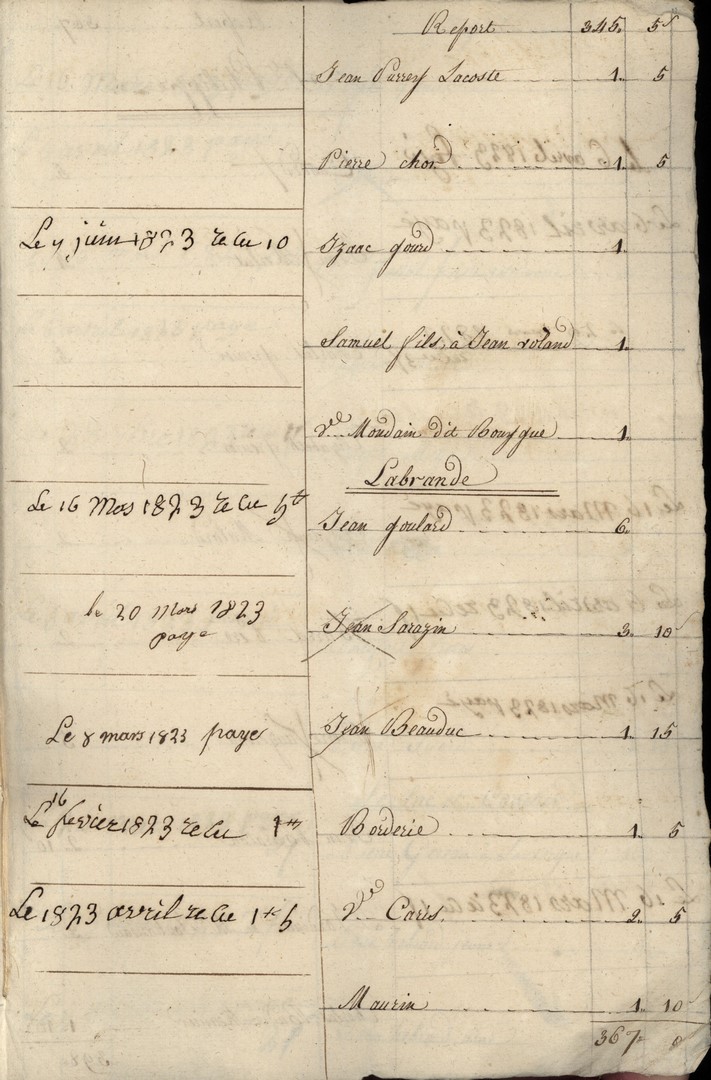 Report 345. 5s
Jean Parrey Lacoste 1. 5
Pierre chon 1. 5
Le 7 juin 1823 recu 10 Izaac gourd 1.
Samuel fils à Jean roland 1.
Vve Moudain dit Bousque 1.
Labrande
Le 16 Mos 1823 recu 5tt Jean goulard 6.
le 20 mars 1823
paye
Jean Sarazin 3. 10
Le 8 mars 1823 paye Jean Beauduc 1. 15
Le 16 fevrier 1823 recu 1tt Borderie 1. 5
Le 1823 avril recu 1tt 5 Vve Caris 2. 5
Maurin 1. 10
367. 0